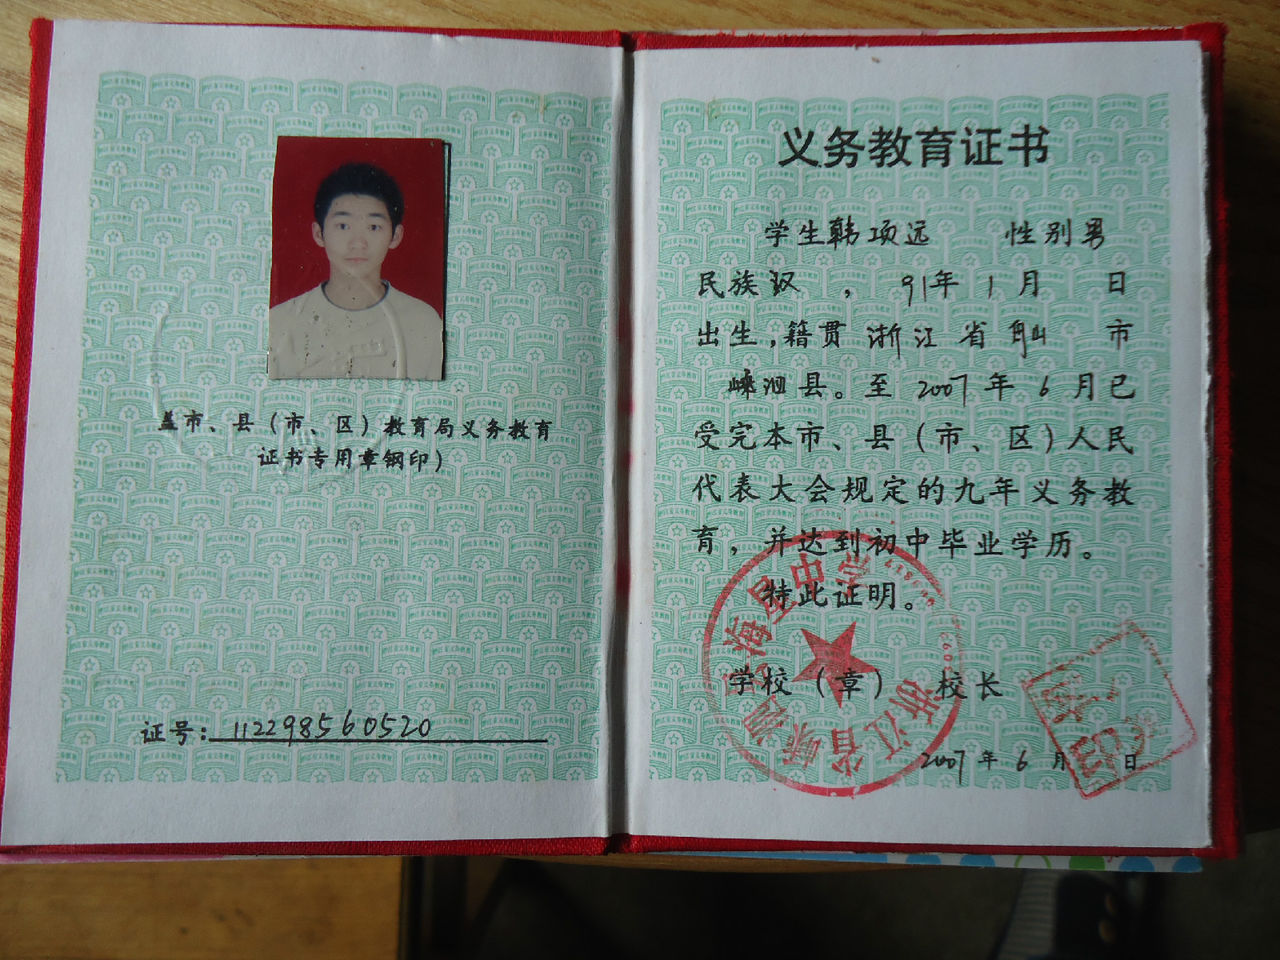 盖市、县（市、区）教育局义务教育
证书专用章钢印）
证号：112298560520
义务教育证书
学生韩项远 性别男
民族汉 ， 91年1月 日
出生，籍贯浙江省舟山 市
嵊泗县。至2007年6月已
受完本市、县（市、区）人民
代表大会规定的九年义务教
育，并达到初中毕业学历。
特此证明。
学校（章） 校长
2007年6月 日
浙江省嵊泗 海星中